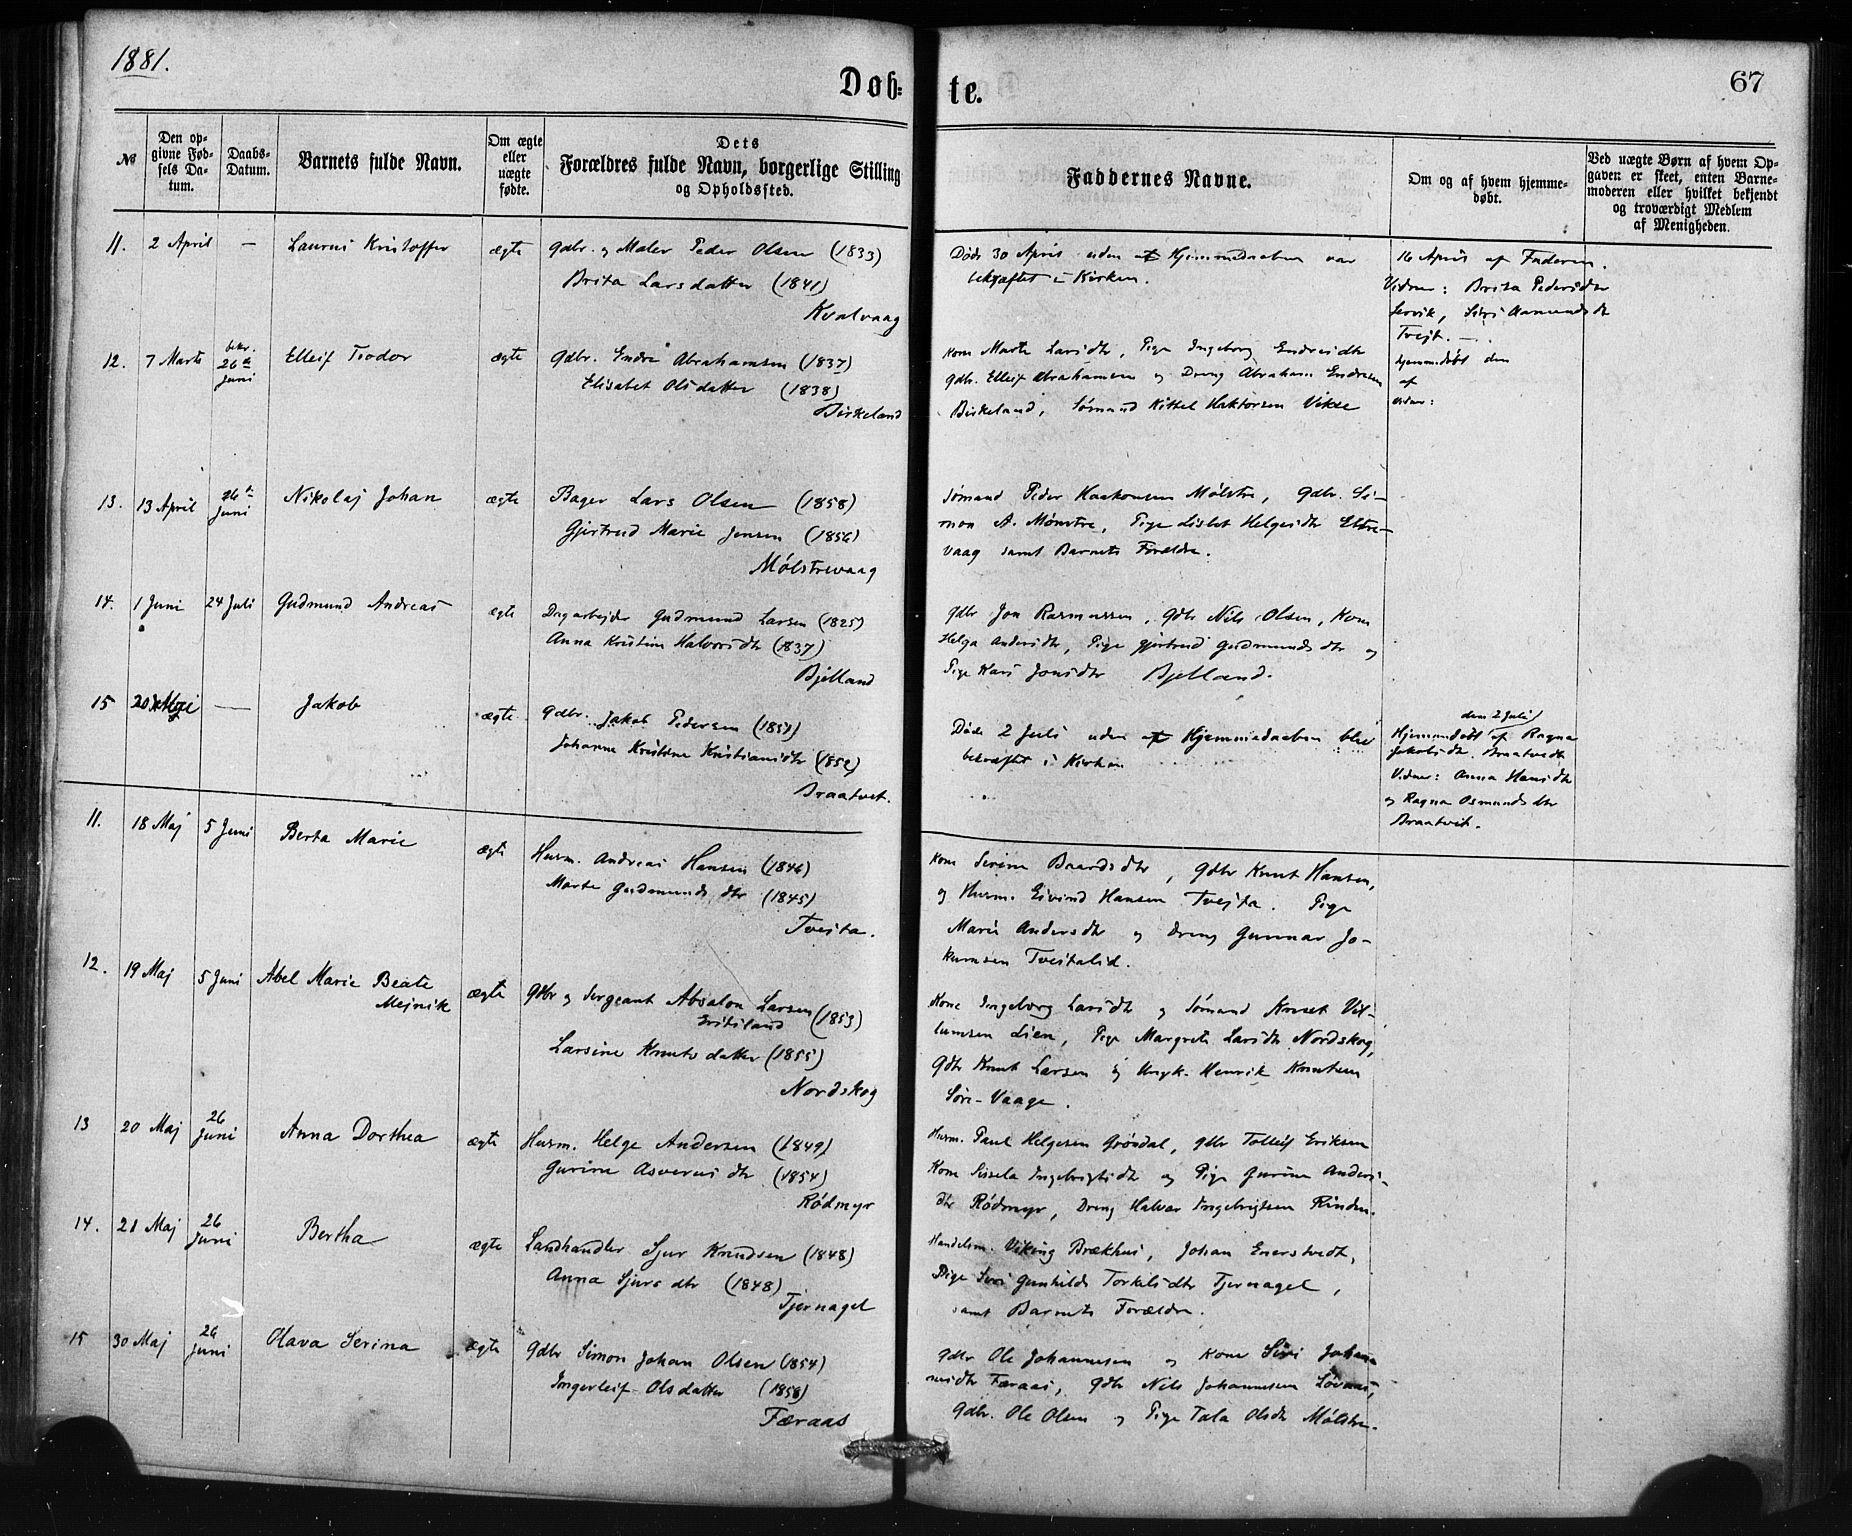 1881.
Døb=
te.
67
№
Den op-
givne Fød-
sels Da-
tum.
Daabs-
Datum.
Barnets fulde Navn.
Om ægte
eller
uægte
fødte.
Dets
Forældres fulde Navn, borgerlige Stilling
og Opholdssted.
Faddernes Navne.
Om og af hvem hjemme-
døbt.
Ved uægte Børn af hvem Op-
gaven er skeet, enten Barne-
moderen eller hvilket bekjendt
og troværdigt Medlem
af Menigheden.
11. 2 April — Laurus Kristoffer ægte Gdbr. og Maler Peder Olsen (1833)
Brita Larsdatter (1841)
Kvalvaag
Døde 30 April uden at Hjemmedaaben var
bekræftet i Kirken.
16 April af Faderen.
Vidner: Brita Pedersdtr
Lervik, Siri Aamundsdtr
Tvejt. —
12. 7 Marts bekr. 26de Juni Elleif Teodor ægte Gdbr. Endre Abrahamsen (1837)
Elisabet Olsdatter (1838)
Birkeland
Kone Marta Larsdtr, Pige Ingeborg Endresdtr
Gdbr. Elleif Abrahamsen og Dreng Abraham Endresen
Birkeland, Sømand Kittel Haktorsen Vikse
hjemmedøbt den
af
Vidner:
13. 13 April 26de Juni Nikolaj Johan ægte Bager Lars Olsen (1858)
Gjertrud Marie Jensen (1856)
Mølstrevaag
Sømand Peder Haakonsen Mølstre, Gdbr. Si-
mon A. Mønstre, Pige Lisbet Helgesdtr Eltre-
vaag samt Barnets Forældre.
14. 1 Juni 24 Juli Gudmund Andreas ægte Dagarbejder Gudmund Larsen (1825)
Anna Kristine Halvorsdtr (1837)
Bjelland
Gdbr Jon Rasmussen, Gdbr Nils Olsen, Kone
Helga Andersdtr, Pige Gjertrud Gudmundsdtr og
Pige Kari Jonsdtr Bjelland.
15 20 Maj — Jakob ægte Gdbr. Jakob Pedersen (1851)
Johanne Kristine Kristiansdtr (1852)
Braatvet.
Døde 2 Juli uden at Hjemmedaaben blev
bekræftet i Kirken
den 2 Juli
Hjemmedøbt af Ragna
Jakobsdtr. Braatvedt
Vidner: Anna Hansdtr
og Ragna Osmundsdtr
Braatveit.
11. 18 Maj 5 Juni Berta Marie ægte Husm. Andreas Hansen (1846)
Marte Gudmundsdtr (1845)
Tveita.
Kone Serine Baardsdtr, Gdbr Knut Hansen,
og Husm. Eivind Hansen Tvejta. Pige
Marie Andersdtr og Dreng Gunnar Jo-
kumsen Tveitalid.
12. 19 Maj 5 Juni Abel Marie Beate
Mejnik ægte Gdbr og Sergeant Absalon Larsen
(1853)
Larsine Knutsdatter (1855)
Nordskog
Kone Ingeborg Larsdtr og Sømand Knut Vil-
lumsen Lien, Pige Margrete Larsdtr Nordskog,
Gdbr Knut Larsen og Ungk. Henrik Knutsen
Søre-Vaage.
13 20 Maj 26 Juni Anna Dorthea ægte Husm. Helge Andersen (1849)
Gurine Asverusdtr (1854)
Rødmyr
Husm. Paul Helgesen Grøsdal, Gdbr Tolleif Eriksen
Kone Sissela Ingebrigtsdtr og Pige Gurine Anders-
dtr Rødmyr, Dreng Halvor Ingebrigtsen Rinden.
14. 21 Maj 26 Juni Bertha ægte Landhandler Sjur Knudsen (1848)
Anna Sjursdtr (1848)
Tjernagel
Handelsm. Viking Brækhus, Johan Enerstvedt,
Pige Siri Gunhilda Torkilsdtr Tjernagel,
samt Barnets Forældre.
15 30 Maj 26 Juni Olava Serina ægte Gdbr Simon Johan Olsen (1854)
Ingerleif Olsdatter (1858)
Færaas
Gdbr Ole Johannesen og Kone Siri Johan-
nesdtr Færaas, Gdbr Nils Johannesen Løvaas,
Gdbr. Ole Olsen og Pige Tala Olsdtr Mølstre.